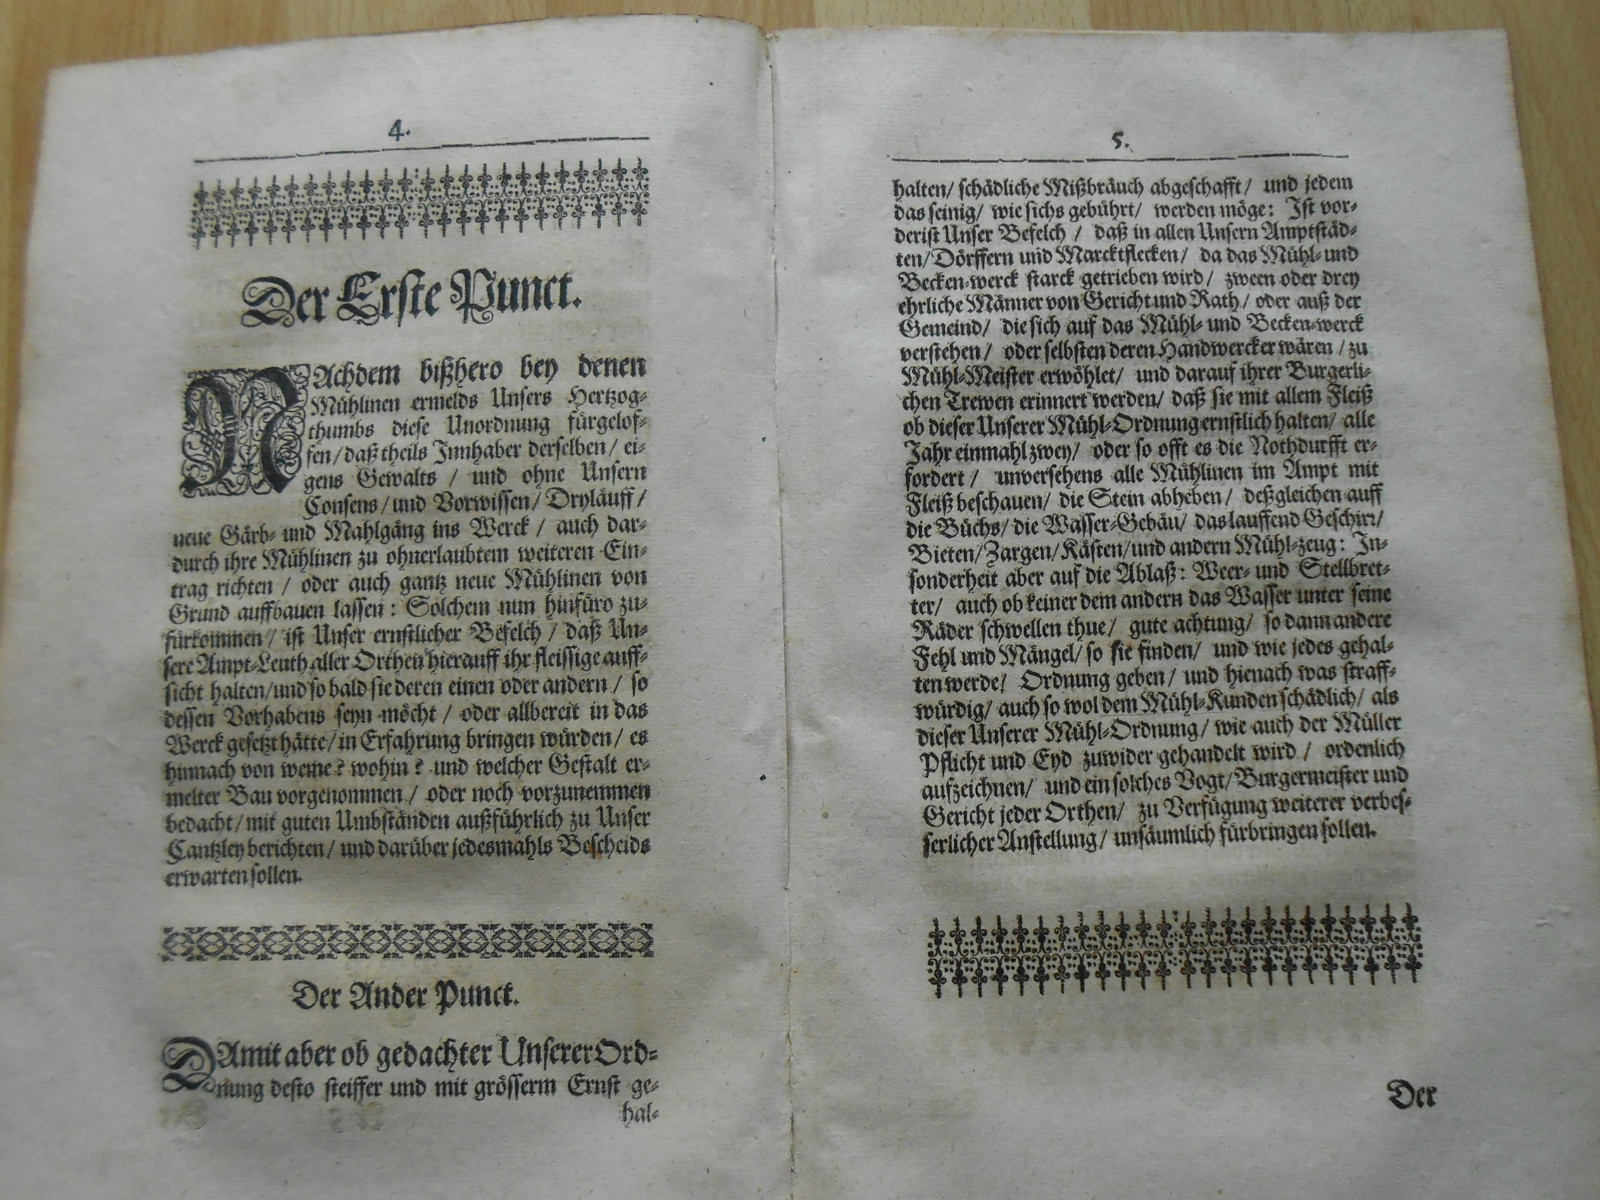 4.
Der Erste Punct.
NAchdem bißhero bey denen
Mühlinen ermelds Unsers Hertzog-
thumbs diese Unordnung fürgelof-
fen/ daß theils Innhaber derselben/ ei-
gens Gewalts / und ohne Unsern
Consens/ und Vorwissen/ Dryläuff/
neue Gärb- und Mahlgäng ins Werck / auch dar-
durch ihre Mühlinen zu ohnerlaubtem weiteren Ein-
trag richten / oder auch gantz neue Mühlinen von
Grund auffbauen lassen : Solchem nun hinfüro zu-
fürkommen/ ist Unser ernstlicher Befelch / daß Un-
sere Ampt-Leuth aller Orthen hierauff ihr fleissige auff-
sicht halten/ und so bald sie deren einen oder andern / so
dessen Vorhabens seyn möcht / oder allbereit in das
Werck gesetzt hätte/ in Erfahrung bringen würden/ es
hinnach von weme? wohin? und welcher Gestalt er-
melter Bau vorgenommen / oder noch vorzunemmen
bedacht/ mit guten Umbständen außführlich zu Unser
Cantzley berichten/ und darüber jedesmahls Bescheids
erwarten sollen.
Der Ander Punct.
DAmit aber ob gedachter Unserer Ord-
nung desto steiffer und mit grösserm Ernst ge-
hal-
5.
halten/ schädliche Mißbräuch abgeschafft/ und jedem
das seinig/ wie sichs gebührt/ werden möge: Ist vor-
derist Unser Befelch / daß in allen Unsern Amptstäd-
ten/ Dörffern und Marcktflecken/ da das Mühl- und
Becken-werck starck getrieben wird/ zween oder drey
ehrliche Männer von Gericht und Rath/ oder auß der
Gemeind/ die sich auf das Mühl- und Becken-werck
verstehen/ oder selbsten deren Handwercker wären / zu
Mühl-Meister erwöhlet/ und darauf ihrer Burgerli-
chen Trewen erinnert werden/ daß sie mit allem Fleiß
ob dieser Unserer Mühl-Ordnung ernstlich halten/ alle
Jahr einmahl zwey/ oder so offt es die Nothdurfft er-
fordert/ unversehens alle Mühlinen im Ampt mit
Fleiß beschauen/ die Stein abheben/ deßgleichen auff
die Büchs/ die Wasser-Gebäu/ das lauffend Geschirr/
Bieten/ Zargen/ Kästen/ und andern Mühl-zeug: In-
sonderheit aber auf die Ablaß: Weer- und Stellbret-
ter/ auch ob keiner dem andern das Wasser unter seine
Räder schwellen thue/ gute achtung/ so dann andere
Fehl und Mängel/ so sie finden/ und wie jedes gehal-
ten werde/ Ordnung geben/ und hienach was straff-
würdig/ auch so wol dem Mühl-Kunden schädlich/ als
dieser Unserer Mühl-Ordnung/ wie auch der Müller
Pflicht und Eyd zuwider gehandelt wird / ordenlich
aufzeichnen/ und ein solches Vogt/ Burgermeister und
Gericht jeder Orthen/ zu Verfügung weiterer verbes-
serlicher Anstellung/ unsäumlich fürbringen sollen.
Der